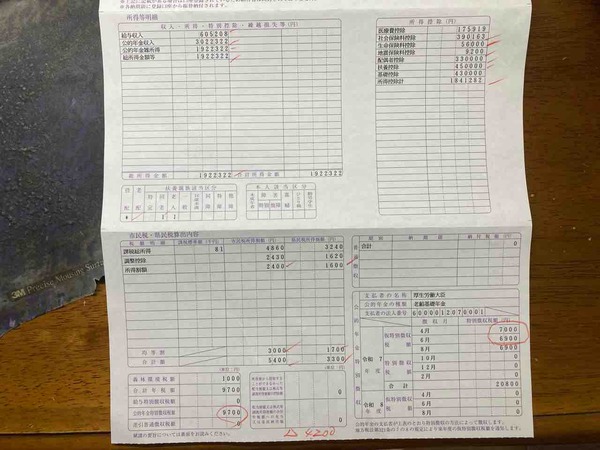 所得等明細
収入・所得・特別控除・繰越損失等(円)
給与収入 605208
公的年金収入 3022322
公的年金雑所得 1922322
総所得金額等 1922322
総所得金額 1922322 合計所得金額 1922322
所得控除(円)
医療費控除 175919
社会保険料控除 390163
生命保険料控除 56000
地震保険料控除 9200
配偶者控除 330000
扶養控除 450000
基礎控除 430000
所得控除計 1841282
扶養親族該当区分
本人該当区分
市民税・県民税算出内容
課税総所得 81 4860 3240
調整控除 2430 1620
所得割額 2400 1600
均等割 3000 1700
合計額 5400 3300
森林環境税額 1000
合計年税額 9700
給与特別徴収税額 0
公的年金特別徴収税額 9700
差引普通徴収税額 0
0
0
0
△4200
期別 納期限 納付税額(円)
合計 0
普通徴収
支払者の名称 厚生労働大臣
公的年金の種類 老齢基礎年金
支払者の法人番号 6000012070001
徴収月 特別徴収税額(円)
公的年金特別徴収
令和7年度
仮特別徴収税額
4月 7000
6月 6900
8月 6900
特別徴収税額
10月 0
12月 0
2月 0
合計 20800
令和8年度
仮特別徴収税額
4月 0
6月 0
8月 0
3M Precise Mousing Surf